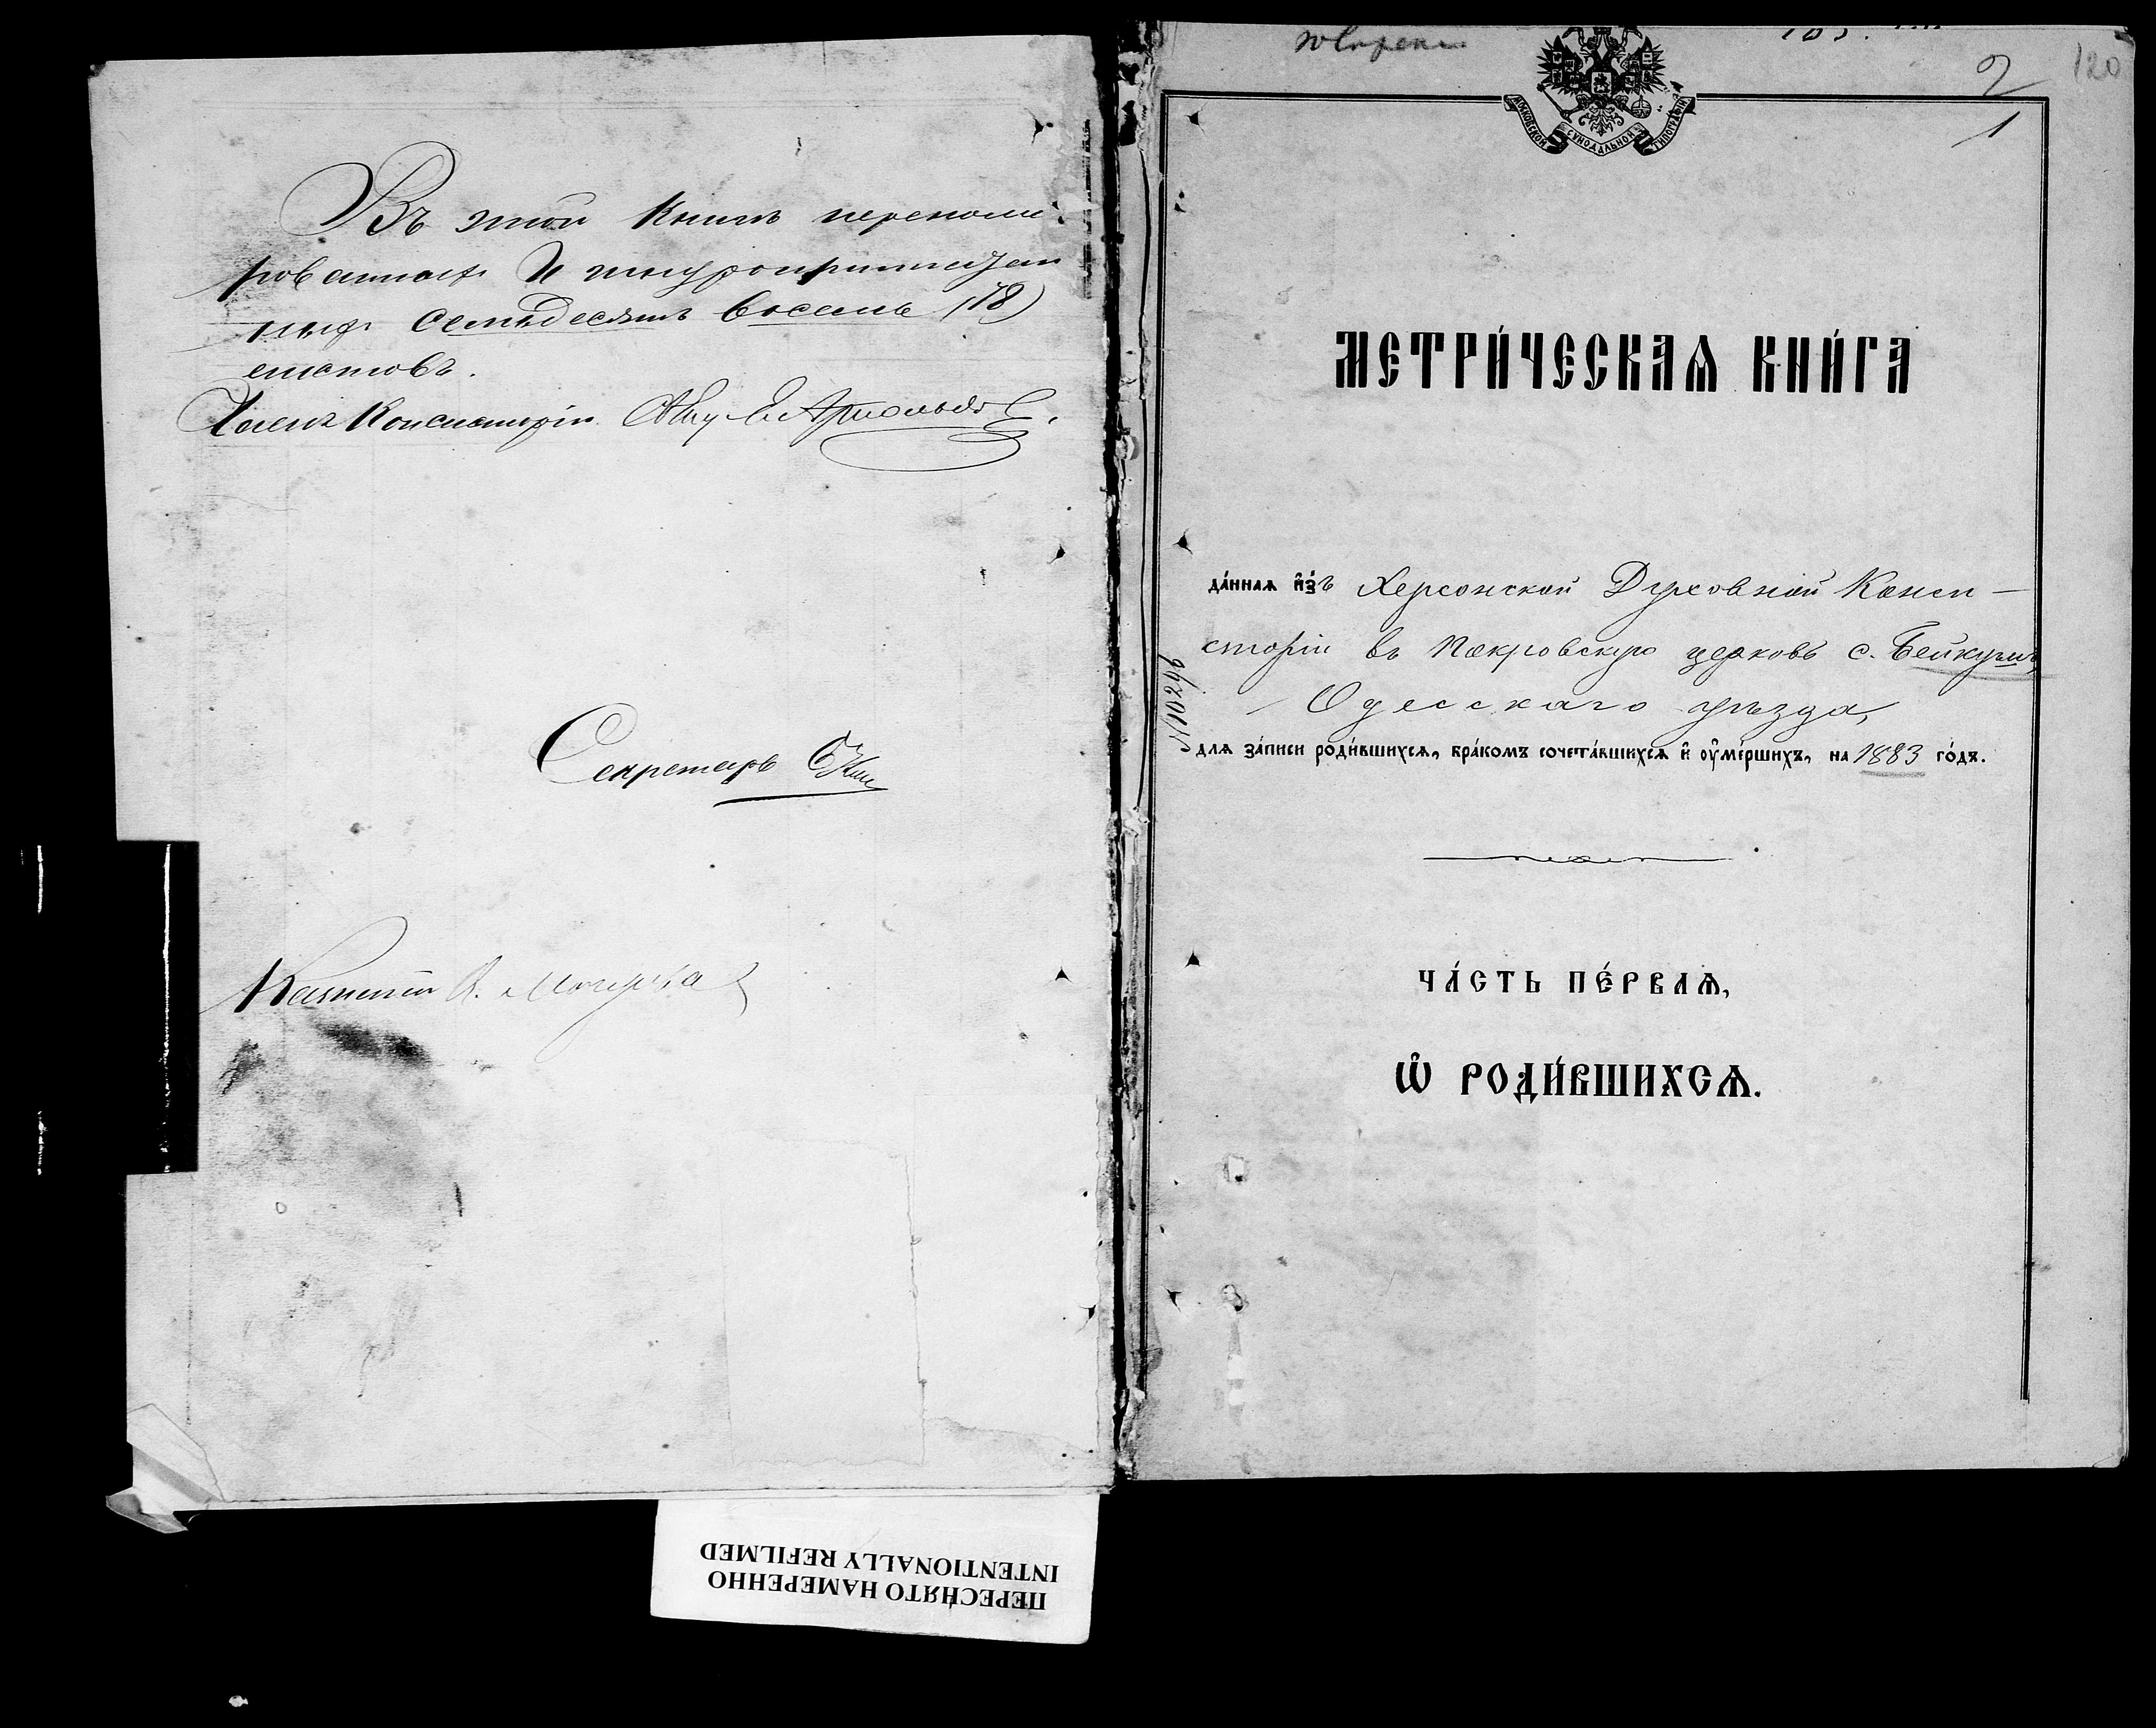 Въ этой книгѣ перенуме-
рованныхъ и шнуроприпечатан
ныхъ семьдесятъ восемь (78)
листовъ.
Членъ Консисторіи
Секретарь
2
120
1
МОСКОВСКОЙ СѴНОДАЛЬНОЙ ТИПОГРАФІИ
МЕТРИ́ЧЕСКАѦ КНИ́ГА
да́ннаѧ и҆з̾ Херсонской Духовной Конси-
сторіи въ Покровскую церковь с. Бейкушъ
Одесскаго уѣзда,
длѧ за́писи роди́вшихсѧ, бра́комъ сочета́вшихсѧ и҆ ѹ҆ме́ршихъ, на 1883 го́дъ.
№10296
ЧА́СТЬ ПЕ́РВАѦ,
Ѡ҆ РОДИ́ВШИХСѦ.
ПЕРЕСНЯТО НАМЕРЕННО
INTENTIONALLY REFILMED